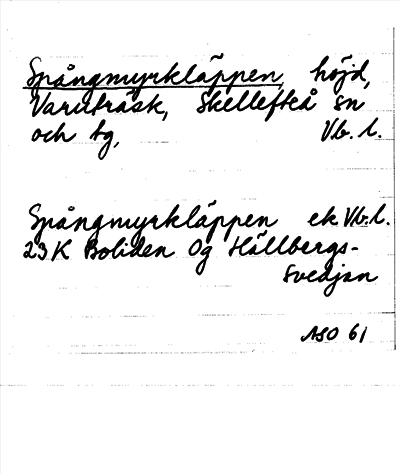 Spångmyrkläppen, höjd,
Varuträsk, Skellefteå sn
och tg, Vb. l.
Spångmyrkläppen ek Vb. l.
23K Boliden 0g Hällbergs-
Svedjan
ASO 61